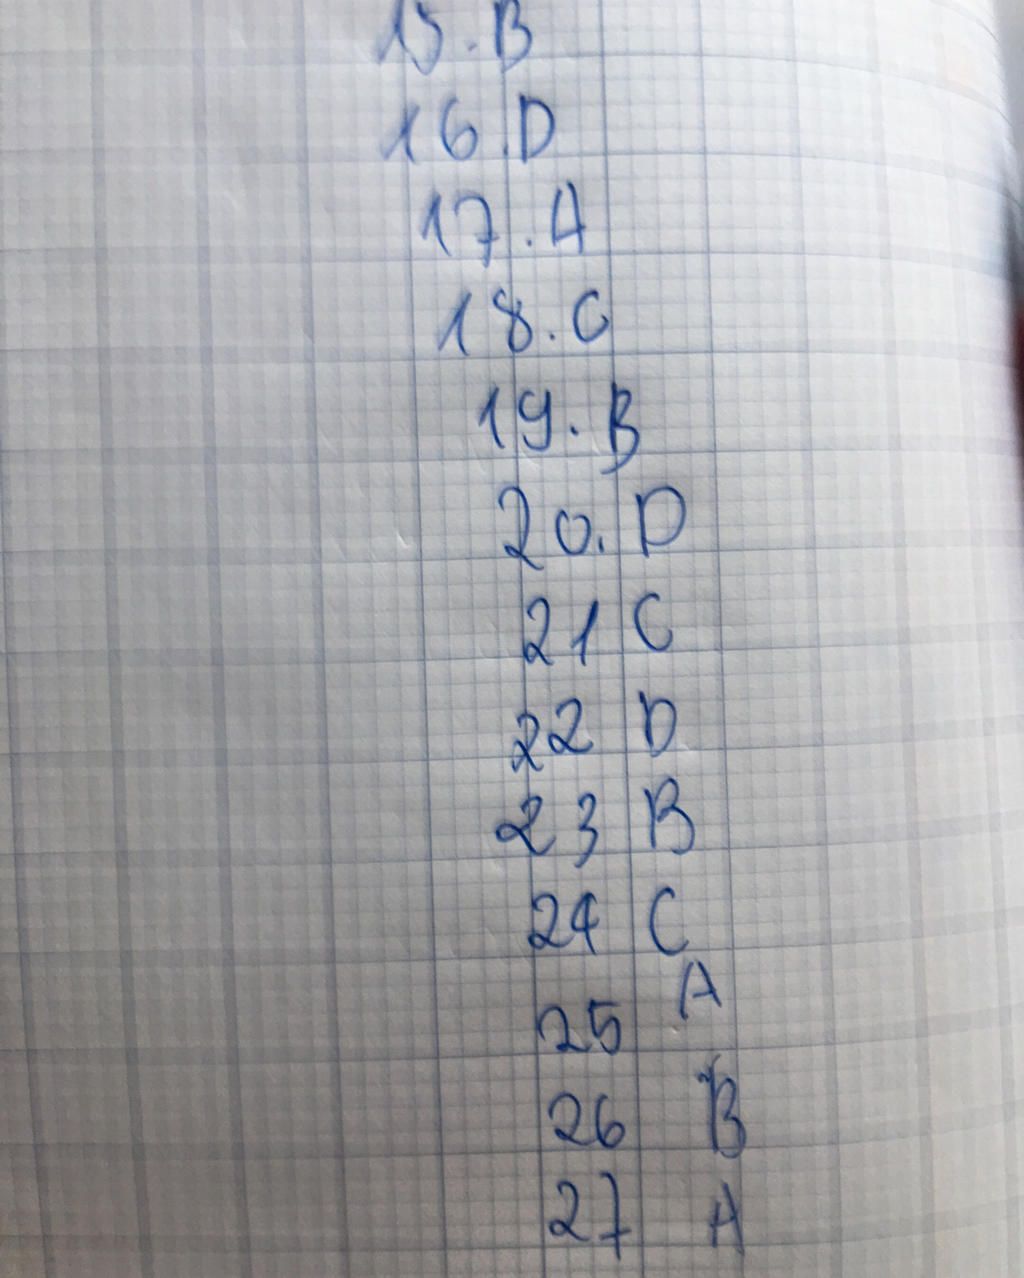 15. B
16 D
17. A
18. C
19. B
20. D
21 C
22 D
23 B
24 C
25 A
26 B
27 A